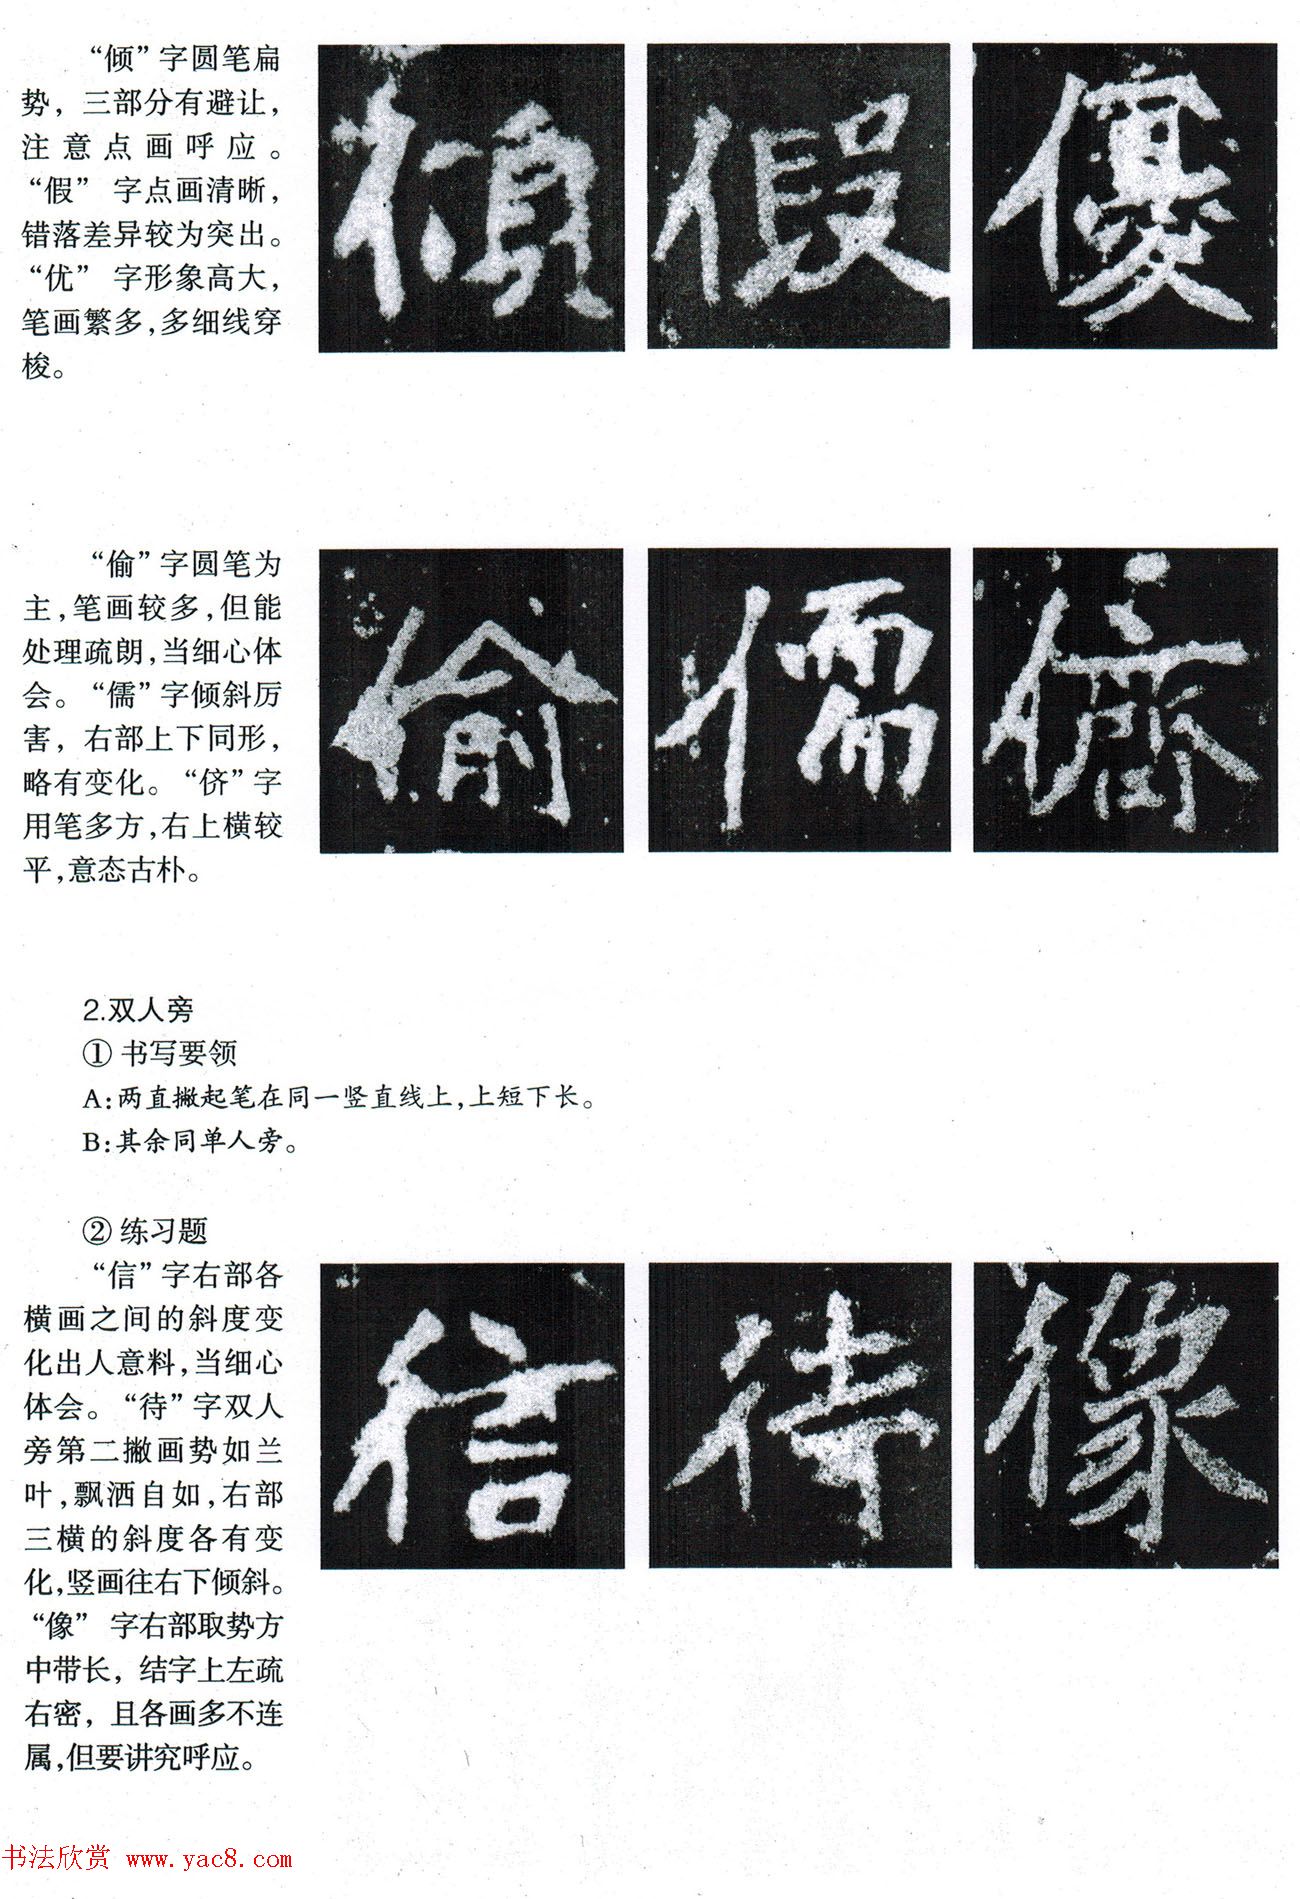 “倾”字圆笔扁
势，三部分有避让，
注意点画呼应。
“假” 字点画清晰，
错落差异较为突出。
“优” 字形象高大，
笔画繁多，多细线穿
梭。
傾 假 優
“偷”字圆笔为
主，笔画较多，但能
处理疏朗，当细心体
会。“儒”字倾斜厉
害，右部上下同形，
略有变化。“侪”字
用笔多方，右上横较
平，意态古朴。
偷 儒 儕
2.双人旁
① 书写要领
A：两直撇起笔在同一竖直线上，上短下长。
B：其余同单人旁。
② 练习题
“信”字右部各
横画之间的斜度变
化出人意料，当细心
体会。“待”字双人
旁第二撇画势如兰
叶，飘洒自如，右部
三横的斜度各有变
化，竖画往右下倾斜。
“像” 字右部取势方
中带长，结字上左疏
右密，且各画多不连
属，但要讲究呼应。
信 待 像
书法欣赏 www.yac8.com